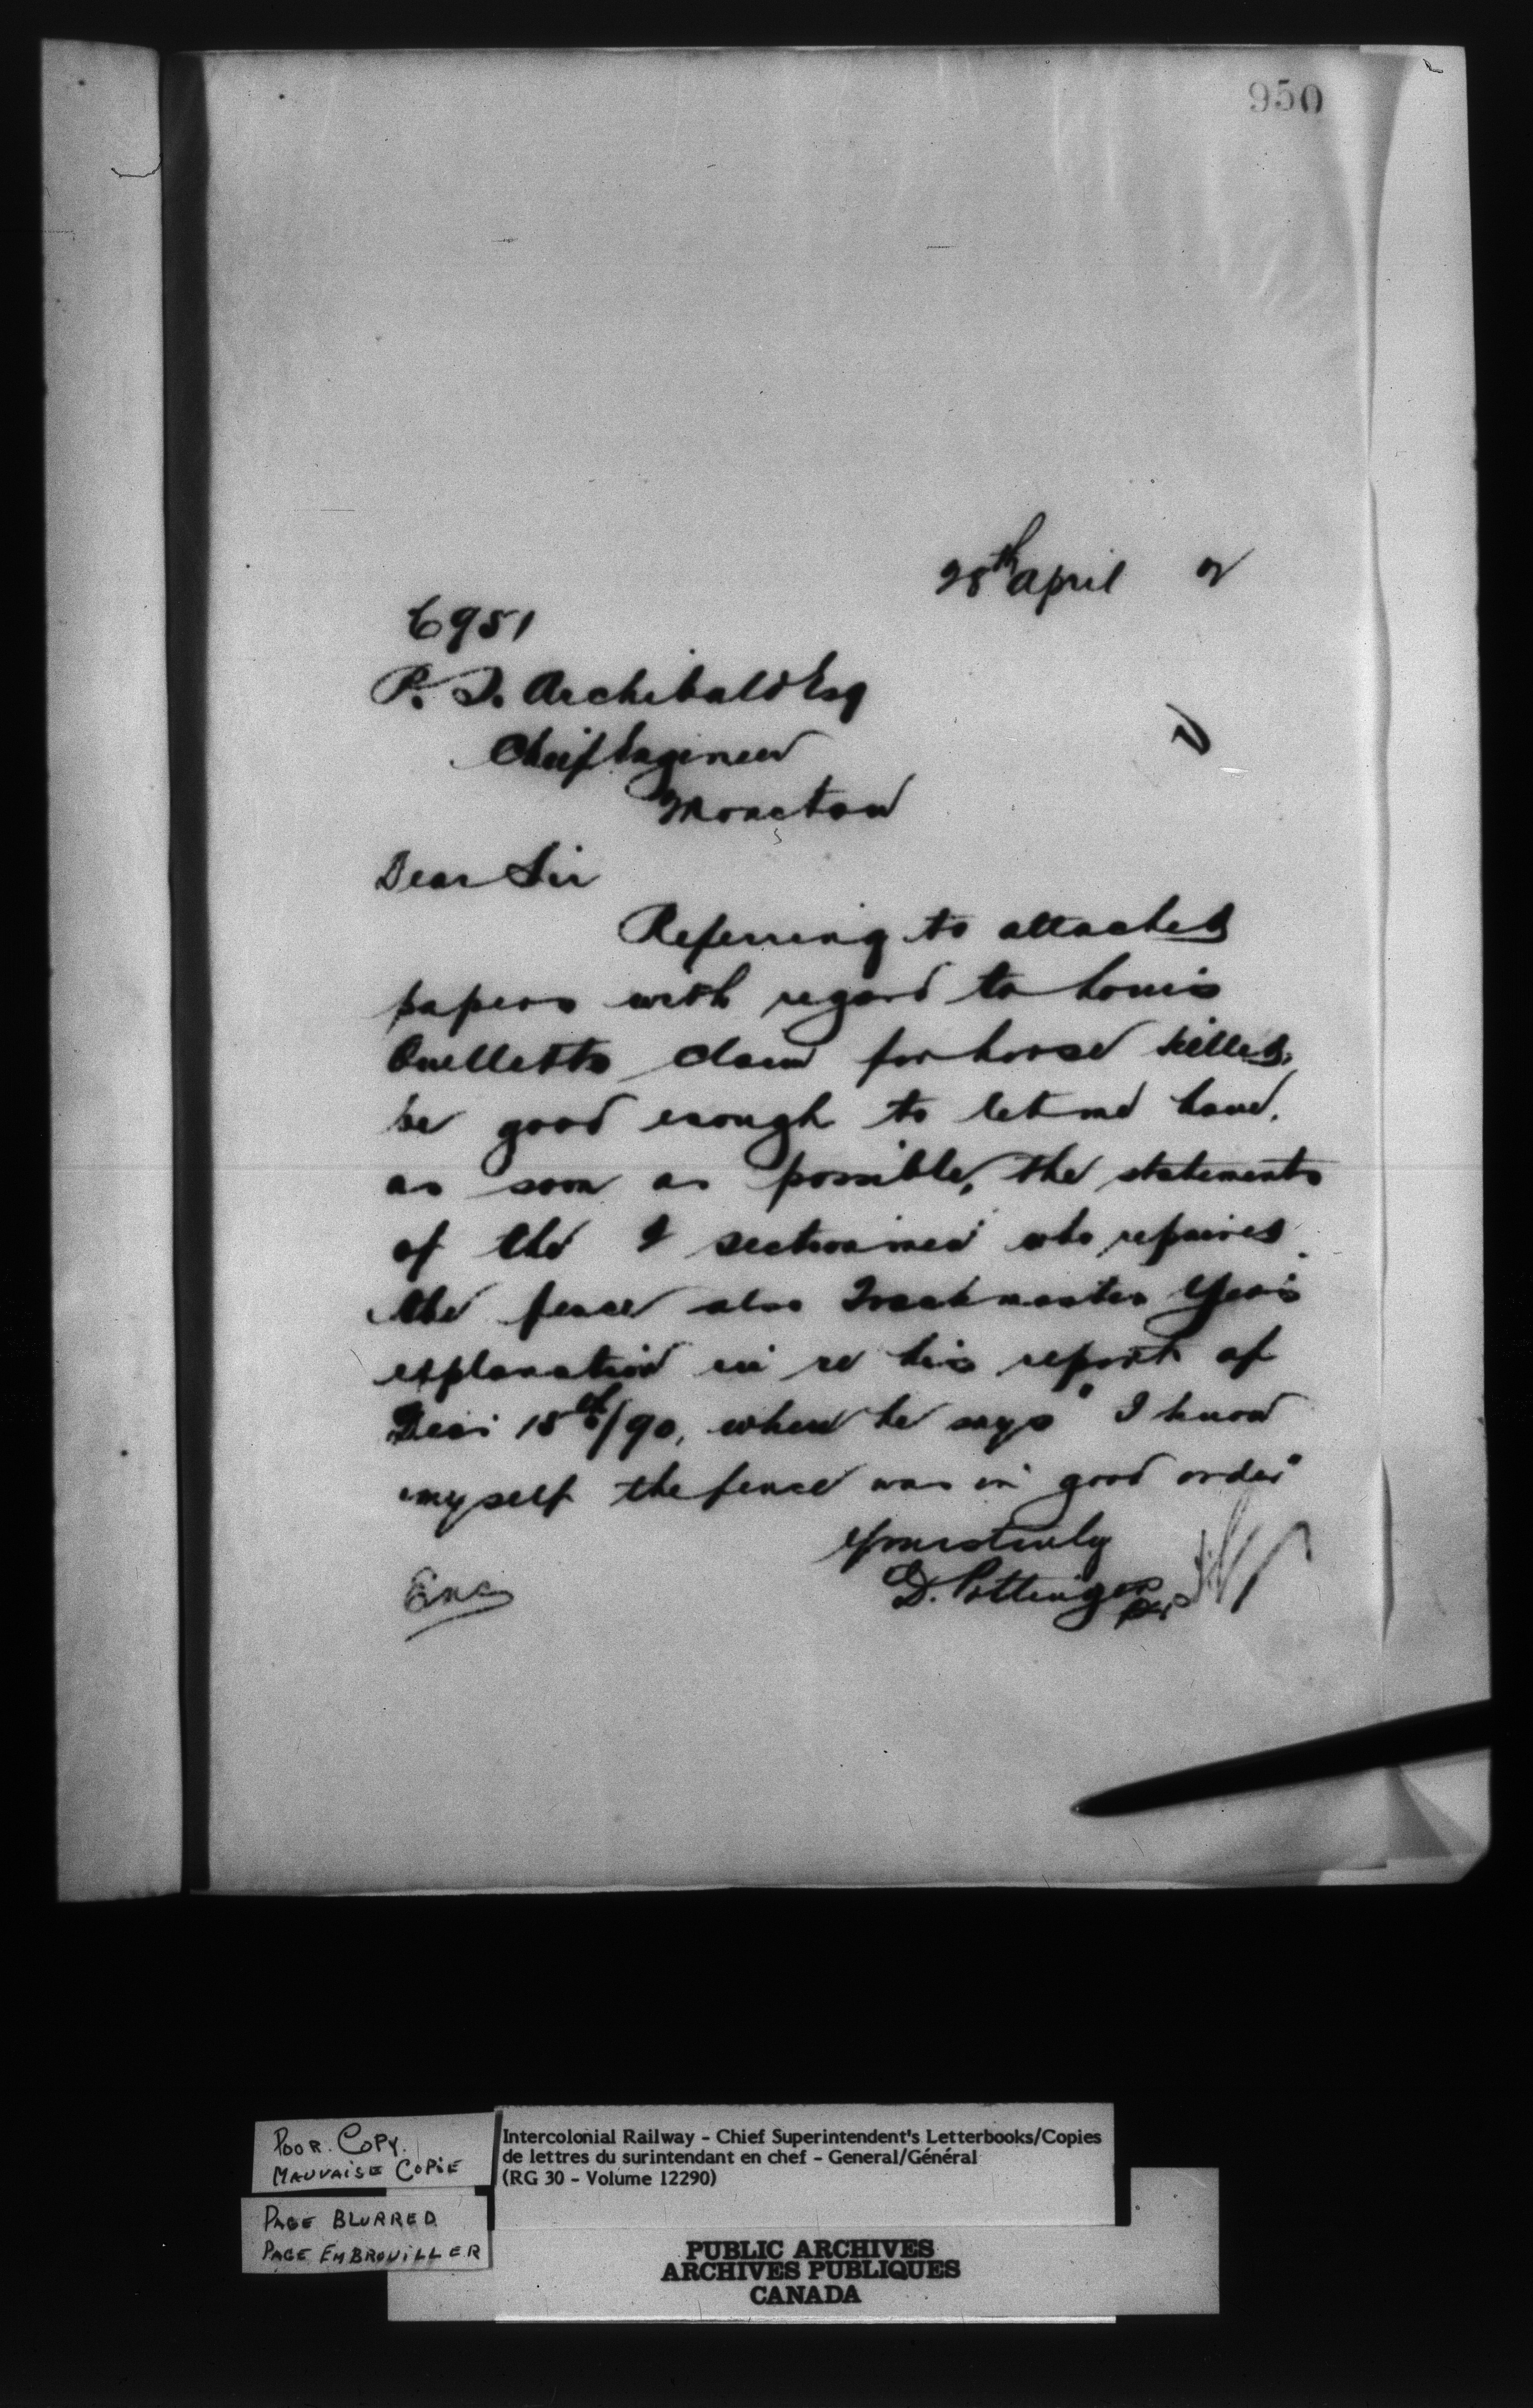 950
28th April 2
C951
P. S. Archibald Esq
Chief Engineer
Moncton
Dear Sir
Referring to attached
papers with regard to Louis
Ouelletts claim for horse killed,
be good enough to let me have,
as soon as possible, the statements
of the 2 sectionmen who repaired
the fence also Trackmaster
explanation in re his report of
Decr 18th/90, where he says "I know
myself the fence was in good order"
Yours truly
D. Pottinger
per
Enc
POOR COPY.
MAUVAISE COPIE
PAGE BLURRED
PAGE EMBROUILLER
Intercolonial Railway - Chief Superintendent's Letterbooks/Copies
de lettres du surintendant en chef - General/Général
(RG 30 - Volume 12290)
PUBLIC ARCHIVES
ARCHIVES PUBLIQUES
CANADA